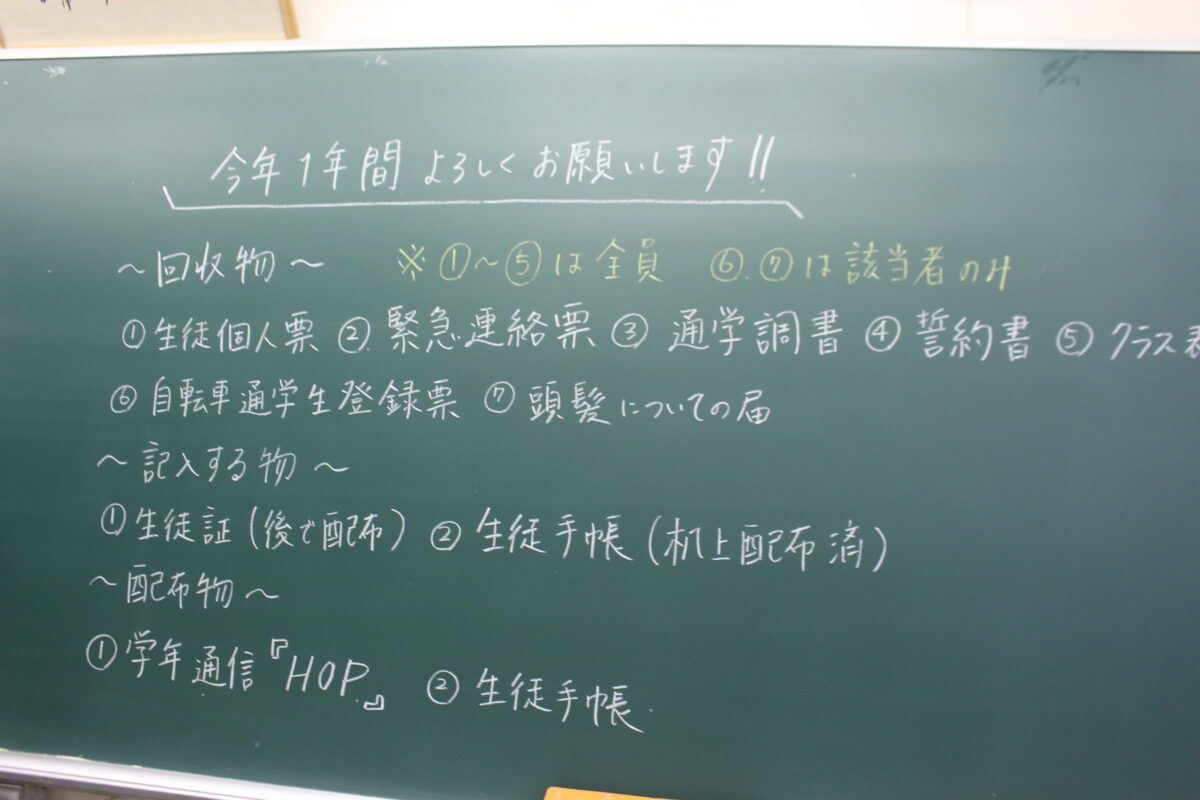 今年1年間よろしくお願いします!!
～回収物～ ※①～⑤は全員 ⑥.⑦は該当者のみ
①生徒個人票 ②緊急連絡票 ③通学調書 ④誓約書 ⑤クラス
⑥自転車通学生登録票 ⑦頭髪についての届
～記入する物～
①生徒証(後で配布) ②生徒手帳(机上配布済)
～配布物～
①学年通信『HOP』 ②生徒手帳